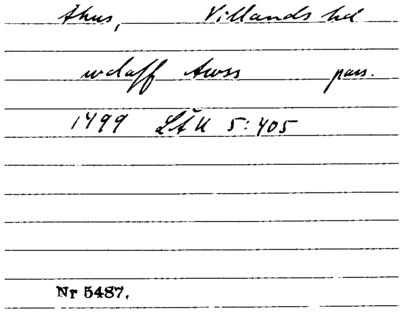 Åhus, Villands hd
wdaff Awss pass.
1499 LÄU 5:405
Nr 5487.